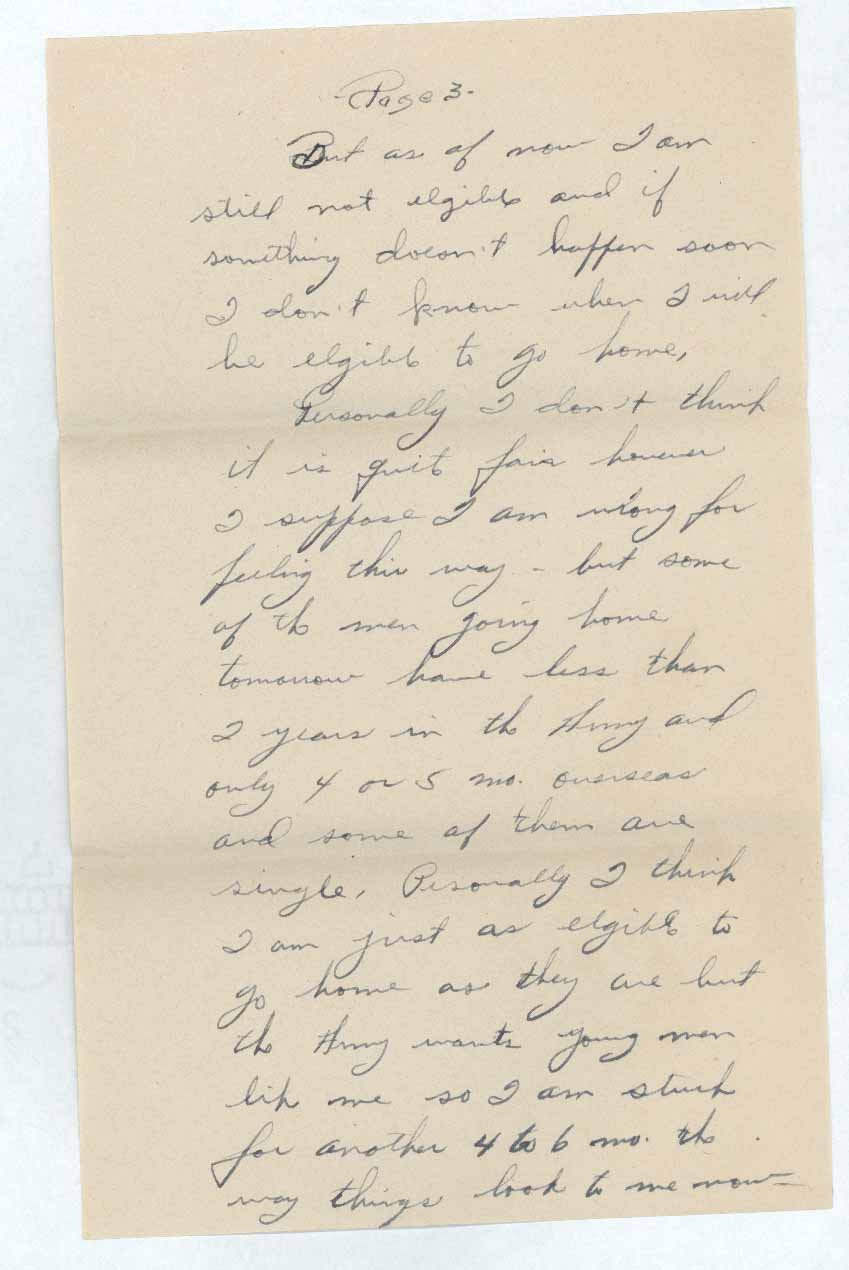 -Page 3-
But as of now I am
still not elgible and if
something doesn't happen soon
I don't know when I will
be elgible to go home.
Personally I don't think
it is quite fair however
I suppose I am wrong for
feeling this way - but some
of the men going home
tomorrow have less than
2 years in the Army and
only 4 or 5 mo. overseas
and some of them are
single. Personally I think
I am just as elgible to
go home as they are but
the Army wants young men
like me so I am stuck
for another 4 to 6 mo. the
way things look to me now